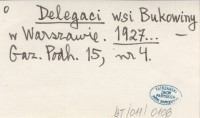 Delegaci wsi Bukowiny
w Warszawie. 1927... —
Gaz. Podh. 15, nr 4.
BT/011/0108